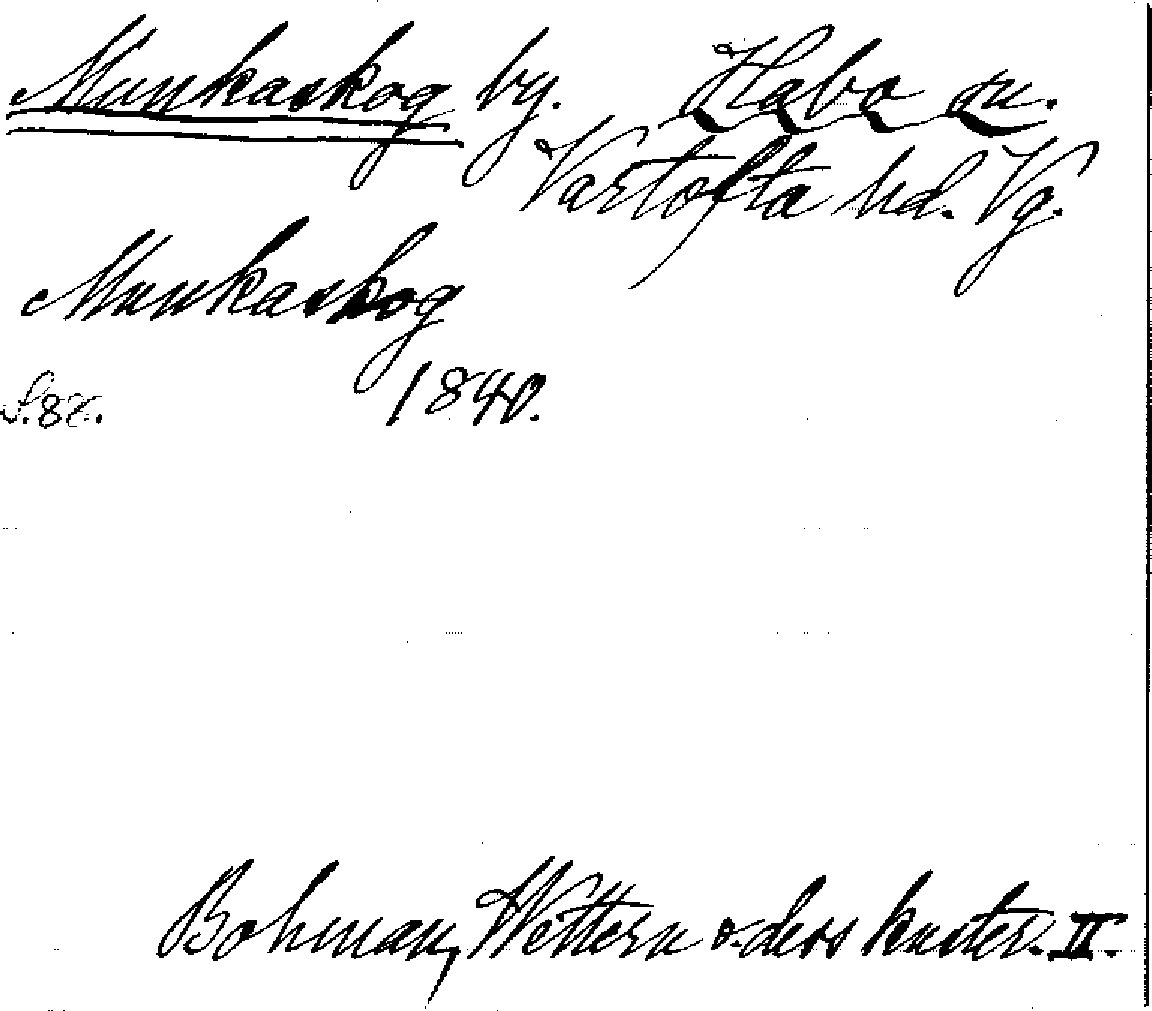 Munkaskog by. Habo sn.
Vartofta hd. Vg.
Munkaskog
S. 82. 1840.
Bohman, Wettern o. dess kuster. II.